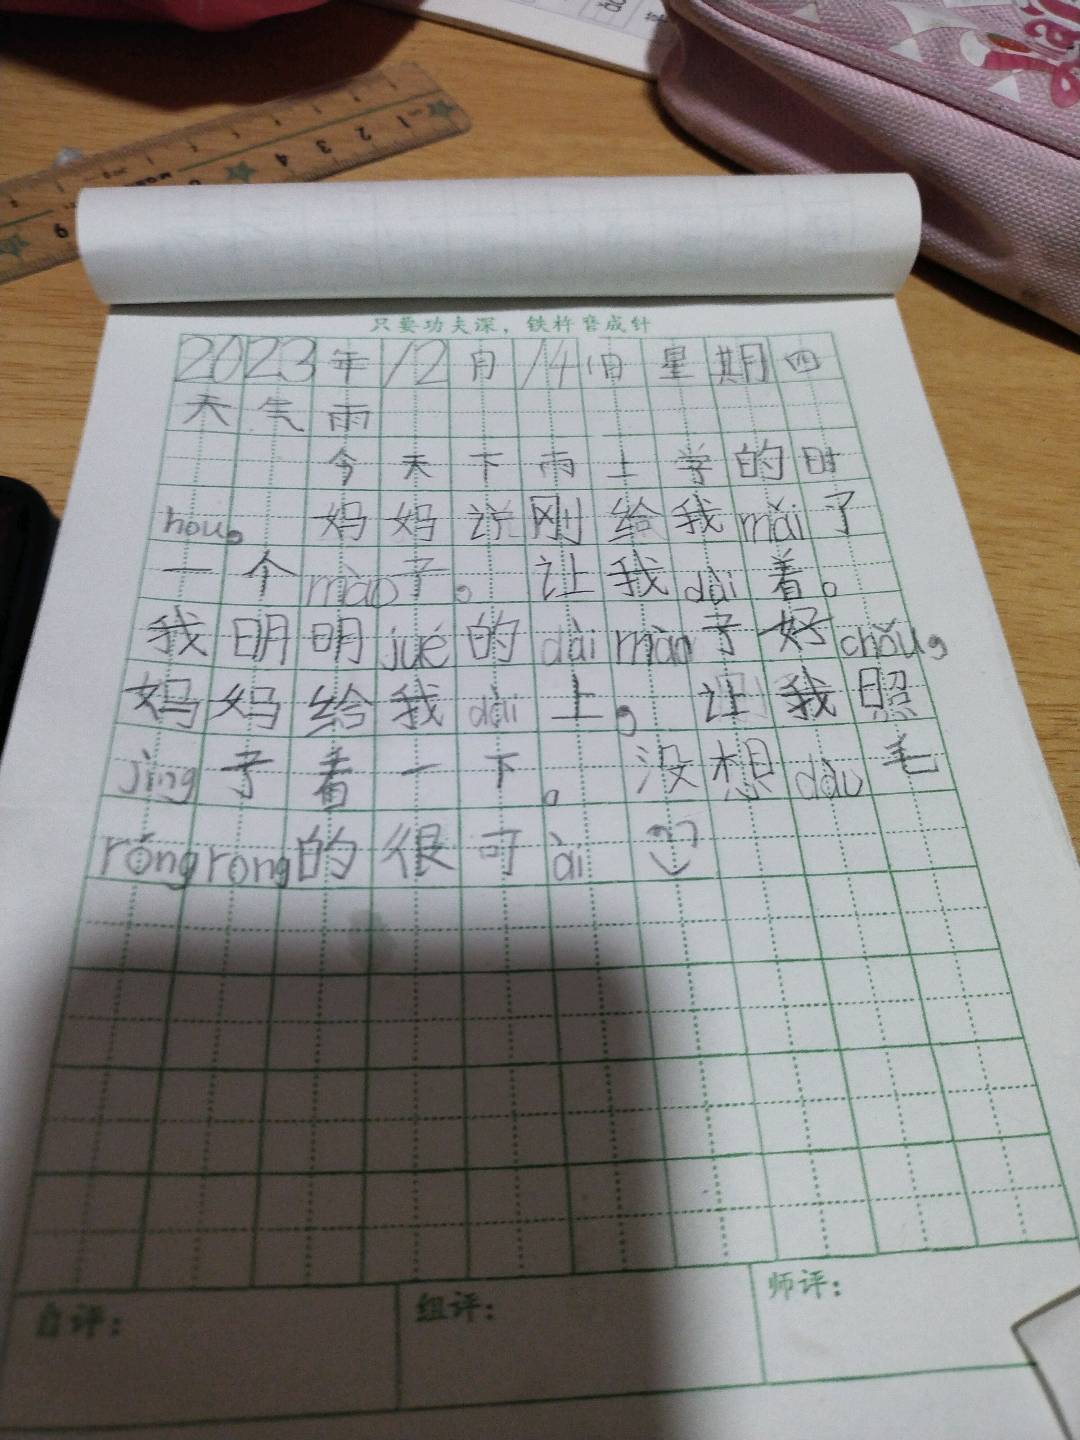 只要功夫深，铁杵磨成针
2023年12月14日星期四
天气雨
今天下雨上学的时
hou。妈妈说刚给我mǎi了
一个mào子。让我dài着。
我明明jué的dài mào子好chǒu，
妈妈给我dài上，让我照
jìng子看一下。没想dào毛
róngrong的很可ài
自评：
组评：
师评：